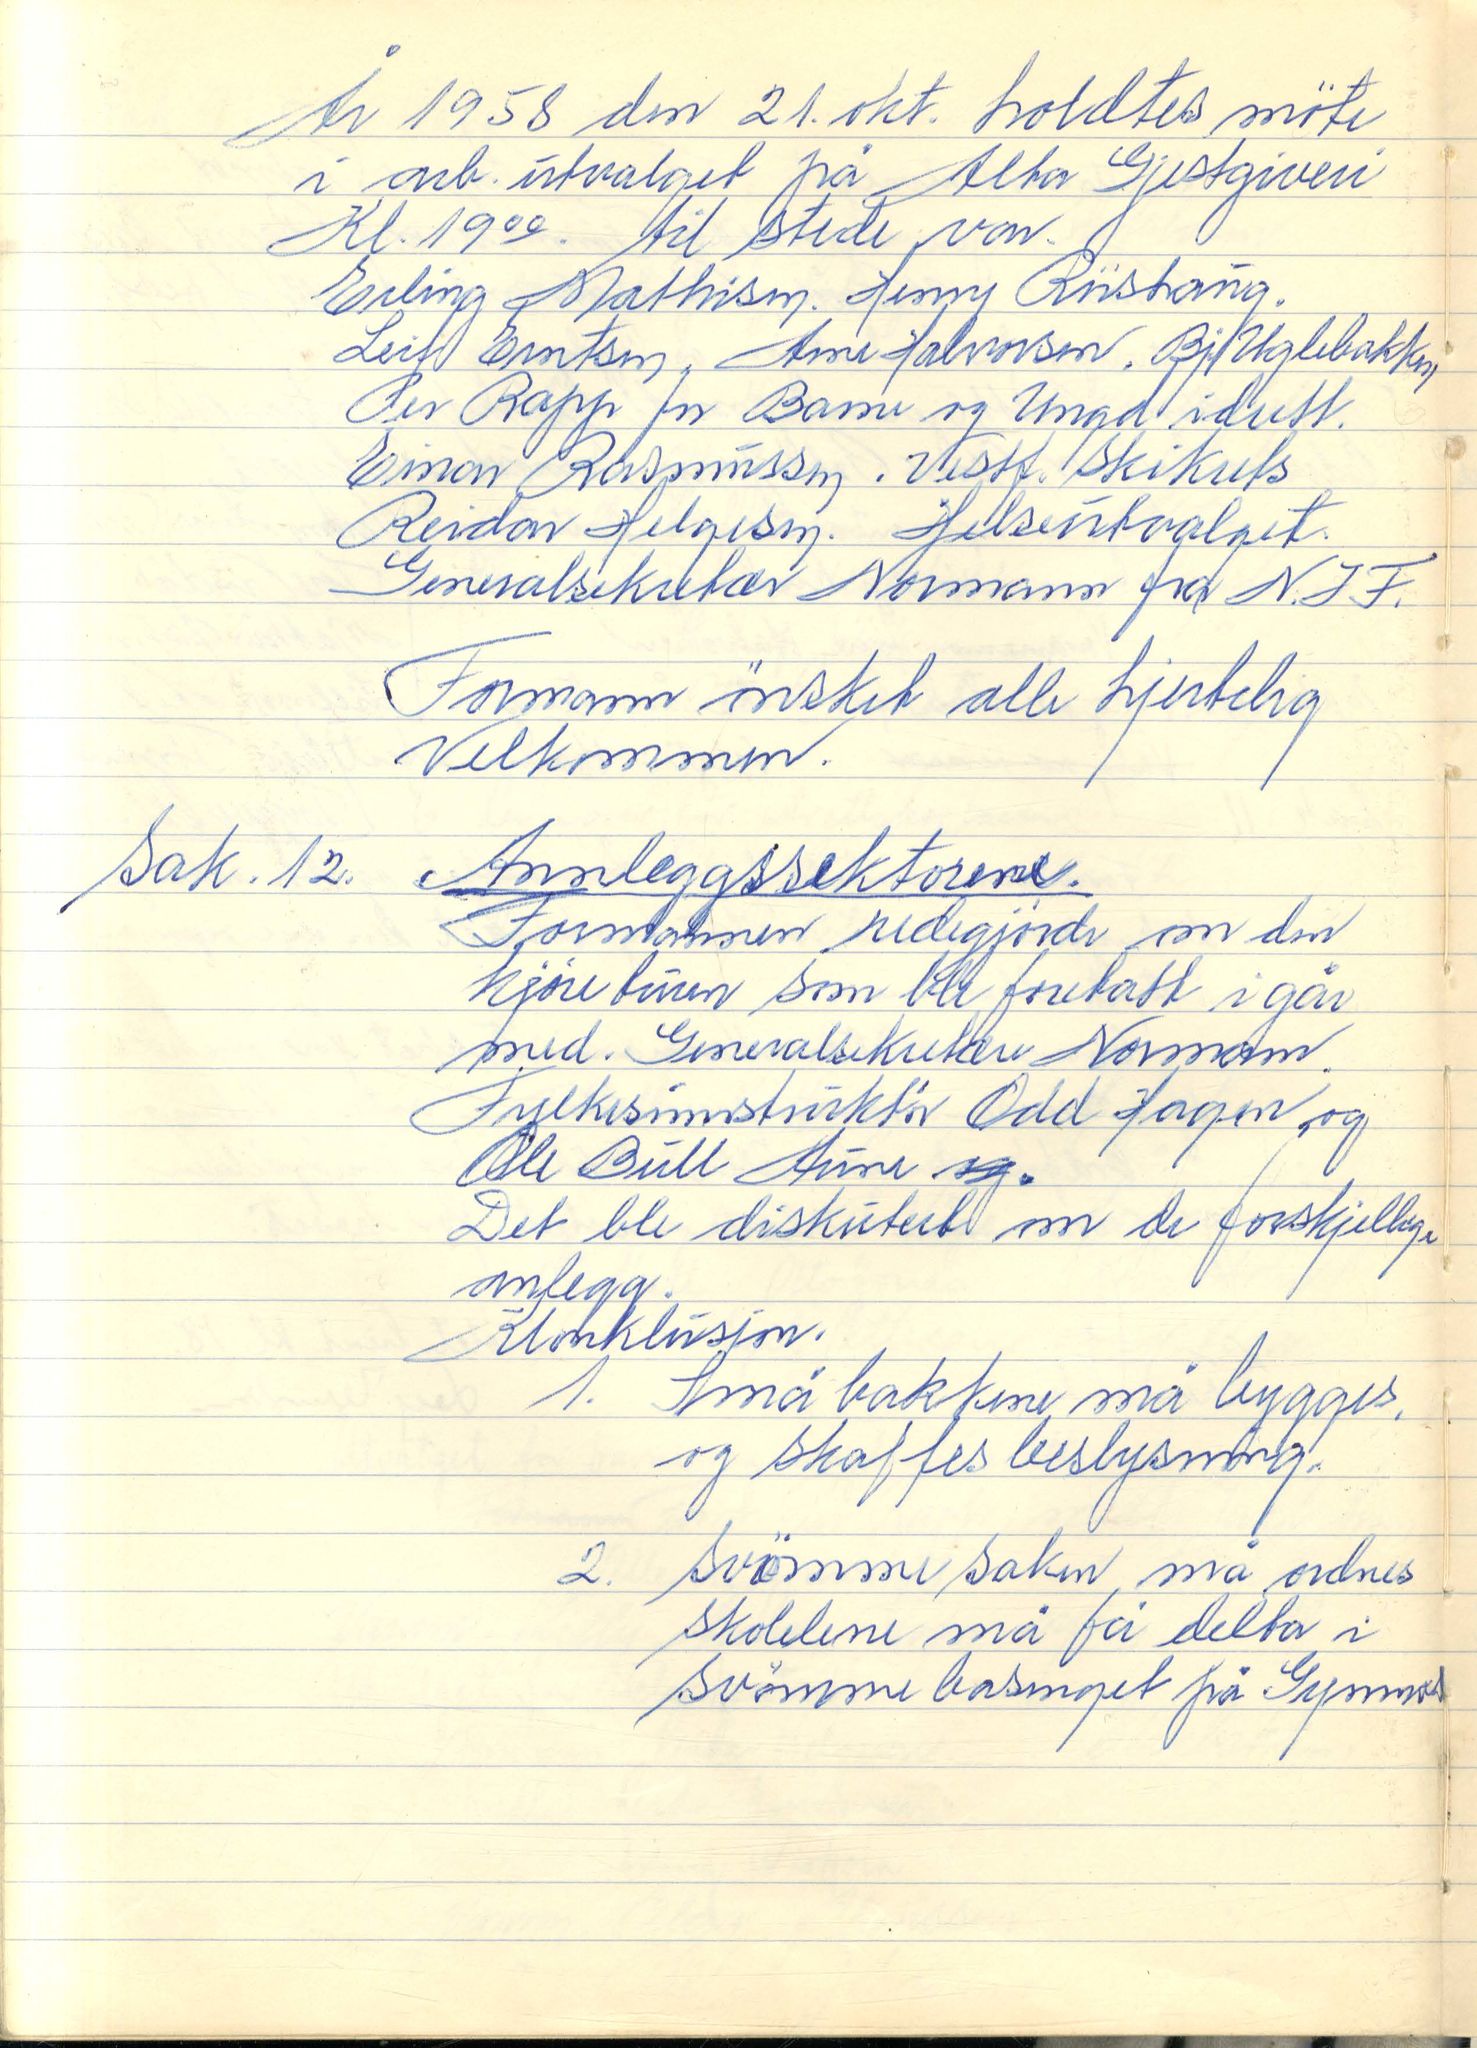 År 1958 den 21. okt. holdtes möte
i arb. utvalget på Alta Gjestgiveri
Kl. 19⁰⁰. til stede var.
Erling Mathisen. Henry Riishaug.
Leif Erntsen, Arne Halvorsen. Bj. Uglebakken
Per Rapp fr Barne og Ungd idrett.
Einar Rasmussen. Vestf. Skikrets
Reidar Helgesen. Helseutvalget.
Generalsekretær Normann fra N.I.F.
Formann önsket alle hjertelig
Velkommen.
Sak. 12. Annleggssektorene.
Formannen redegjörde om den
kjöre turen som ble foretatt i går
med. Generalsekretære Normann.
Fylkesinnstruktör Odd Hagen og
Ole Bull Aune og.
Det ble diskutert om de forskjellige
anlegg.
Klonklusjon.
1. Små bakkene må bygges,
og skaffes beslysning.
2. Svömme saken må ordnes
skolelene må få delta i
svömme basenget på Gymnas